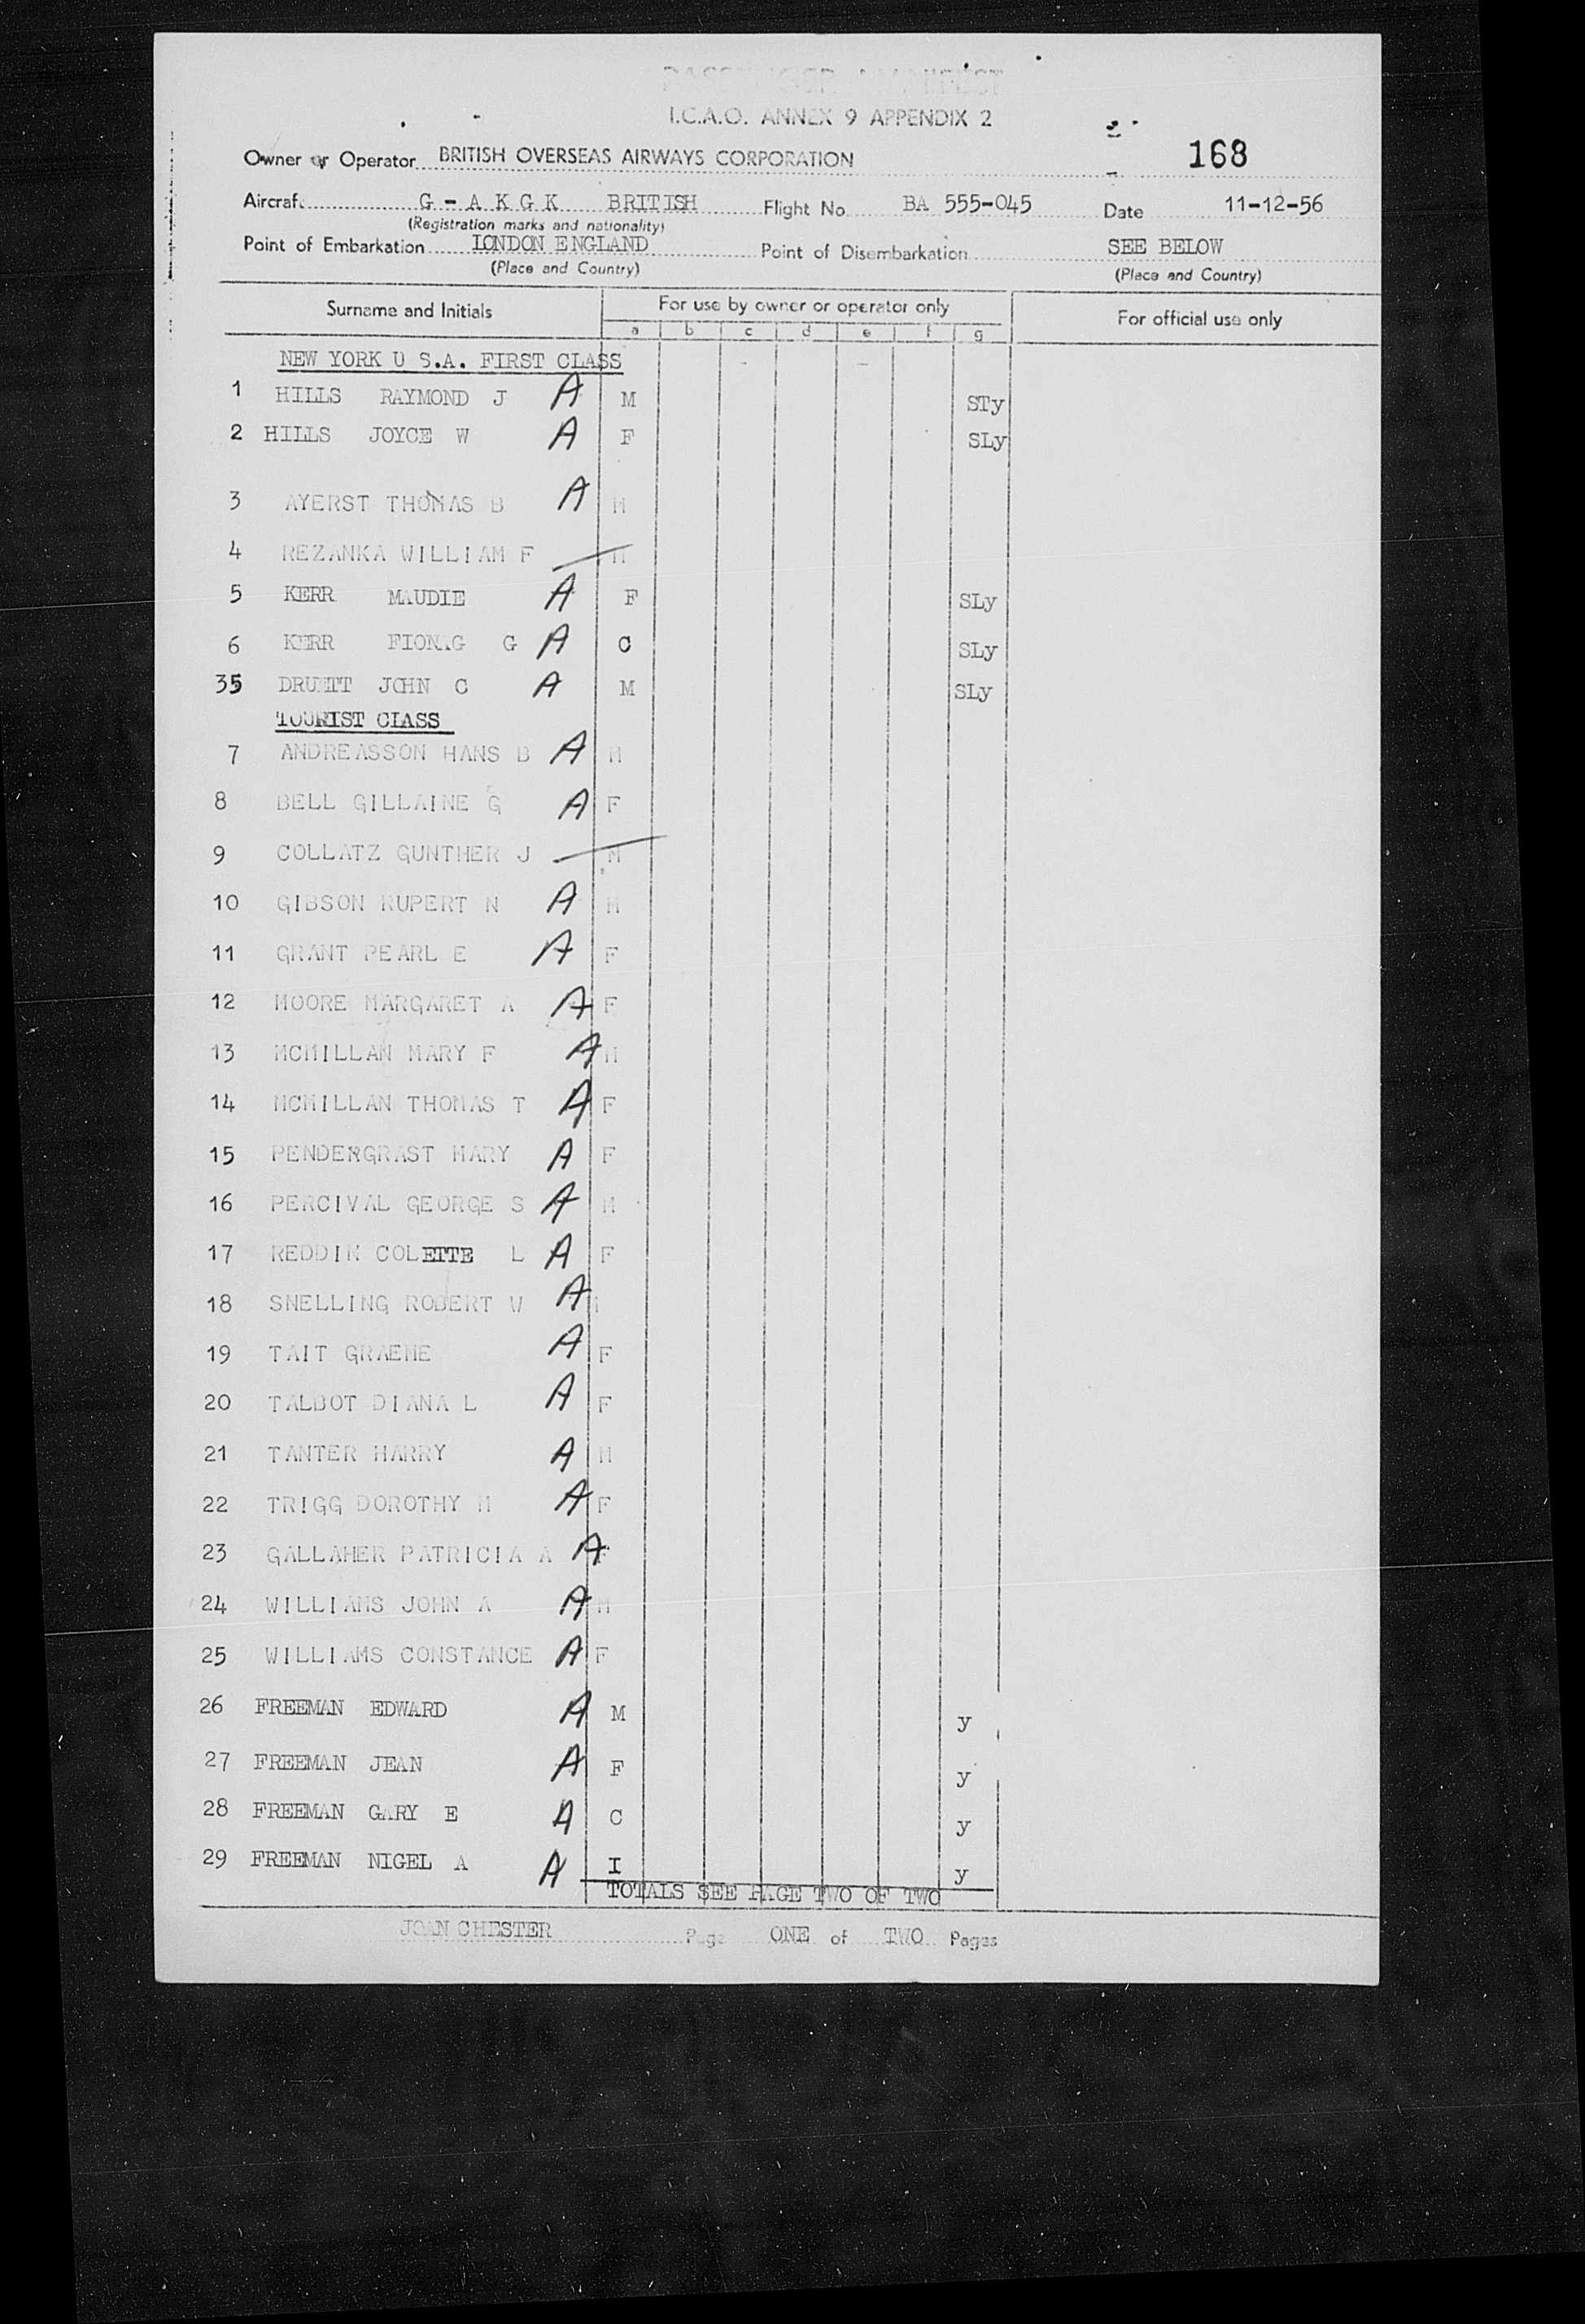 PASSENGER MANIFEST
I.C.A.O. ANNEX 9 APPENDIX 2
168
Owner or Operator BRITISH OVERSEAS AIRWAYS CORPORATION
Aircraft G - A K G K BRITISH Flight No. BA 555-045 Date 11-12-56
(Registration marks and nationality)
Point of Embarkation LONDON ENGLAND Point of Disembarkation SEE BELOW
(Place and Country) (Place and Country)
Surname and Initials For use by owner or operator only For official use only
a b c d e f g
NEW YORK U S.A. FIRST CLASS
1 HILLS RAYMOND J A M STy
2 HILLS JOYCE W A F SLy
3 AYERST THOMAS B A M
4 REZANKA WILLIAM F M
5 KERR MAUDIE A F SLy
6 KERR G A C SLy
35 JOHN C A M SLy
TOURIST CLASS
7 ANDREASSON HANS B A M
8 BELL GILLAINE G A F
9 COLLATZ GUNTHER J M
10 GIBSON RUPERT N A M
11 GRANT PEARL E A F
12 MOORE MARGARET A A F
13 MCMILLAN MARY F A M
14 MCMILLAN THOMAS T A F
15 PENDERGRAST MARY A F
16 PERCIVAL GEORGE S A M
17 REDDIN COLETTE L A F
18 SNELLING ROBERT W A
19 TAIT GRAEME A F
20 TALBOT DIANA L A F
21 TANTER HARRY A M
22 TRIGG DOROTHY M A F
23 GALLAHER PATRICIA A A F
24 WILLIAMS JOHN A A M
25 WILLIAMS CONSTANCE A F
26 FREEMAN EDWARD A M y
27 FREEMAN JEAN A F y
28 FREEMAN GARY E A C y
29 FREEMAN NIGEL A A I y
TOTALS SEE PAGE TWO OF TWO
JOAN CHESTER Page ONE of TWO Pages